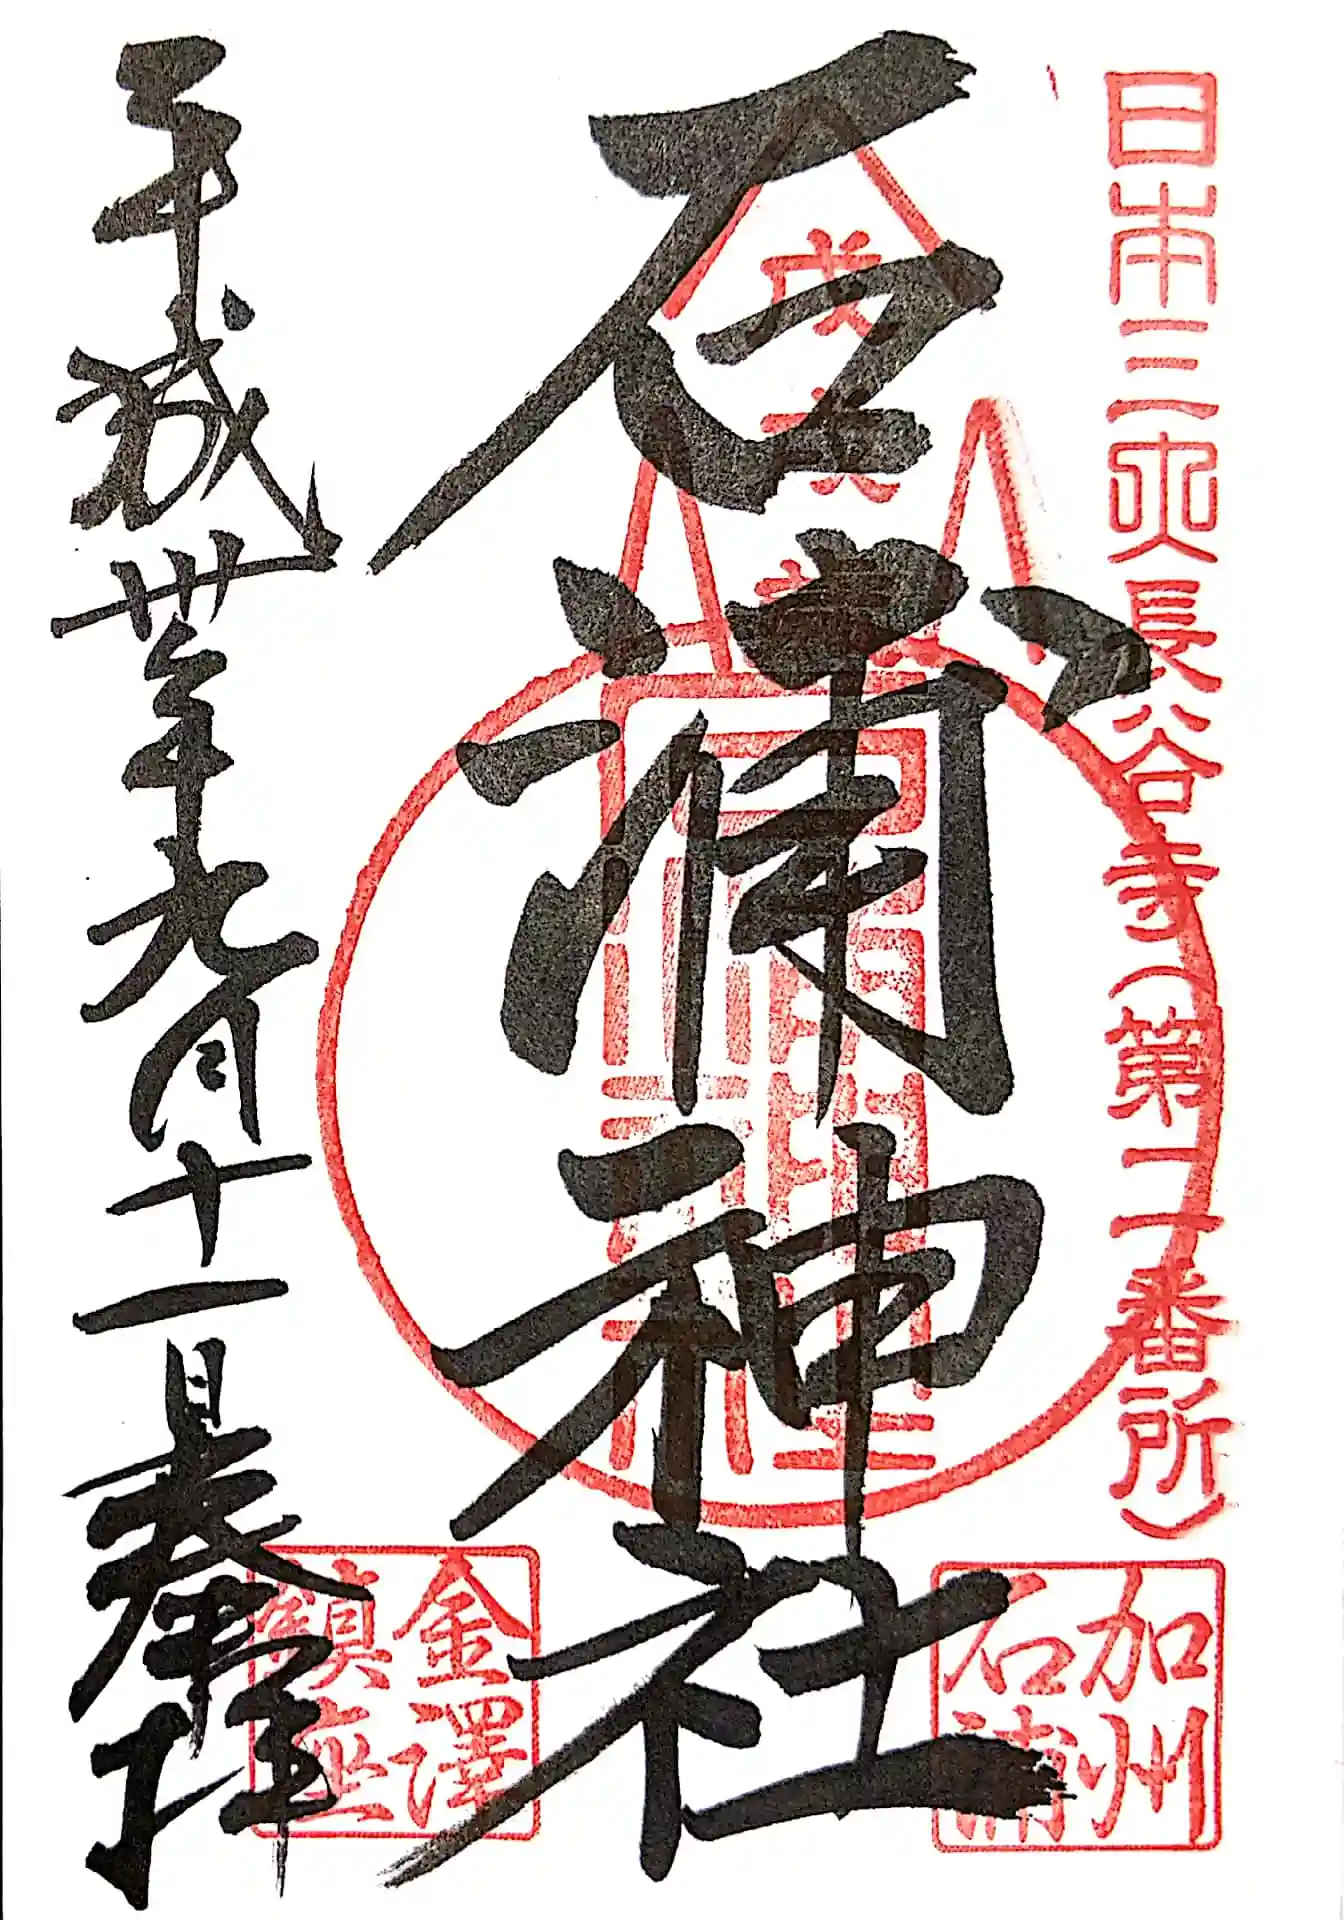 日本三大長谷寺（第二番所）
加州
石浦
石浦神社
戌亥
金澤
鎮座
平成卅年九月十一日奉拝